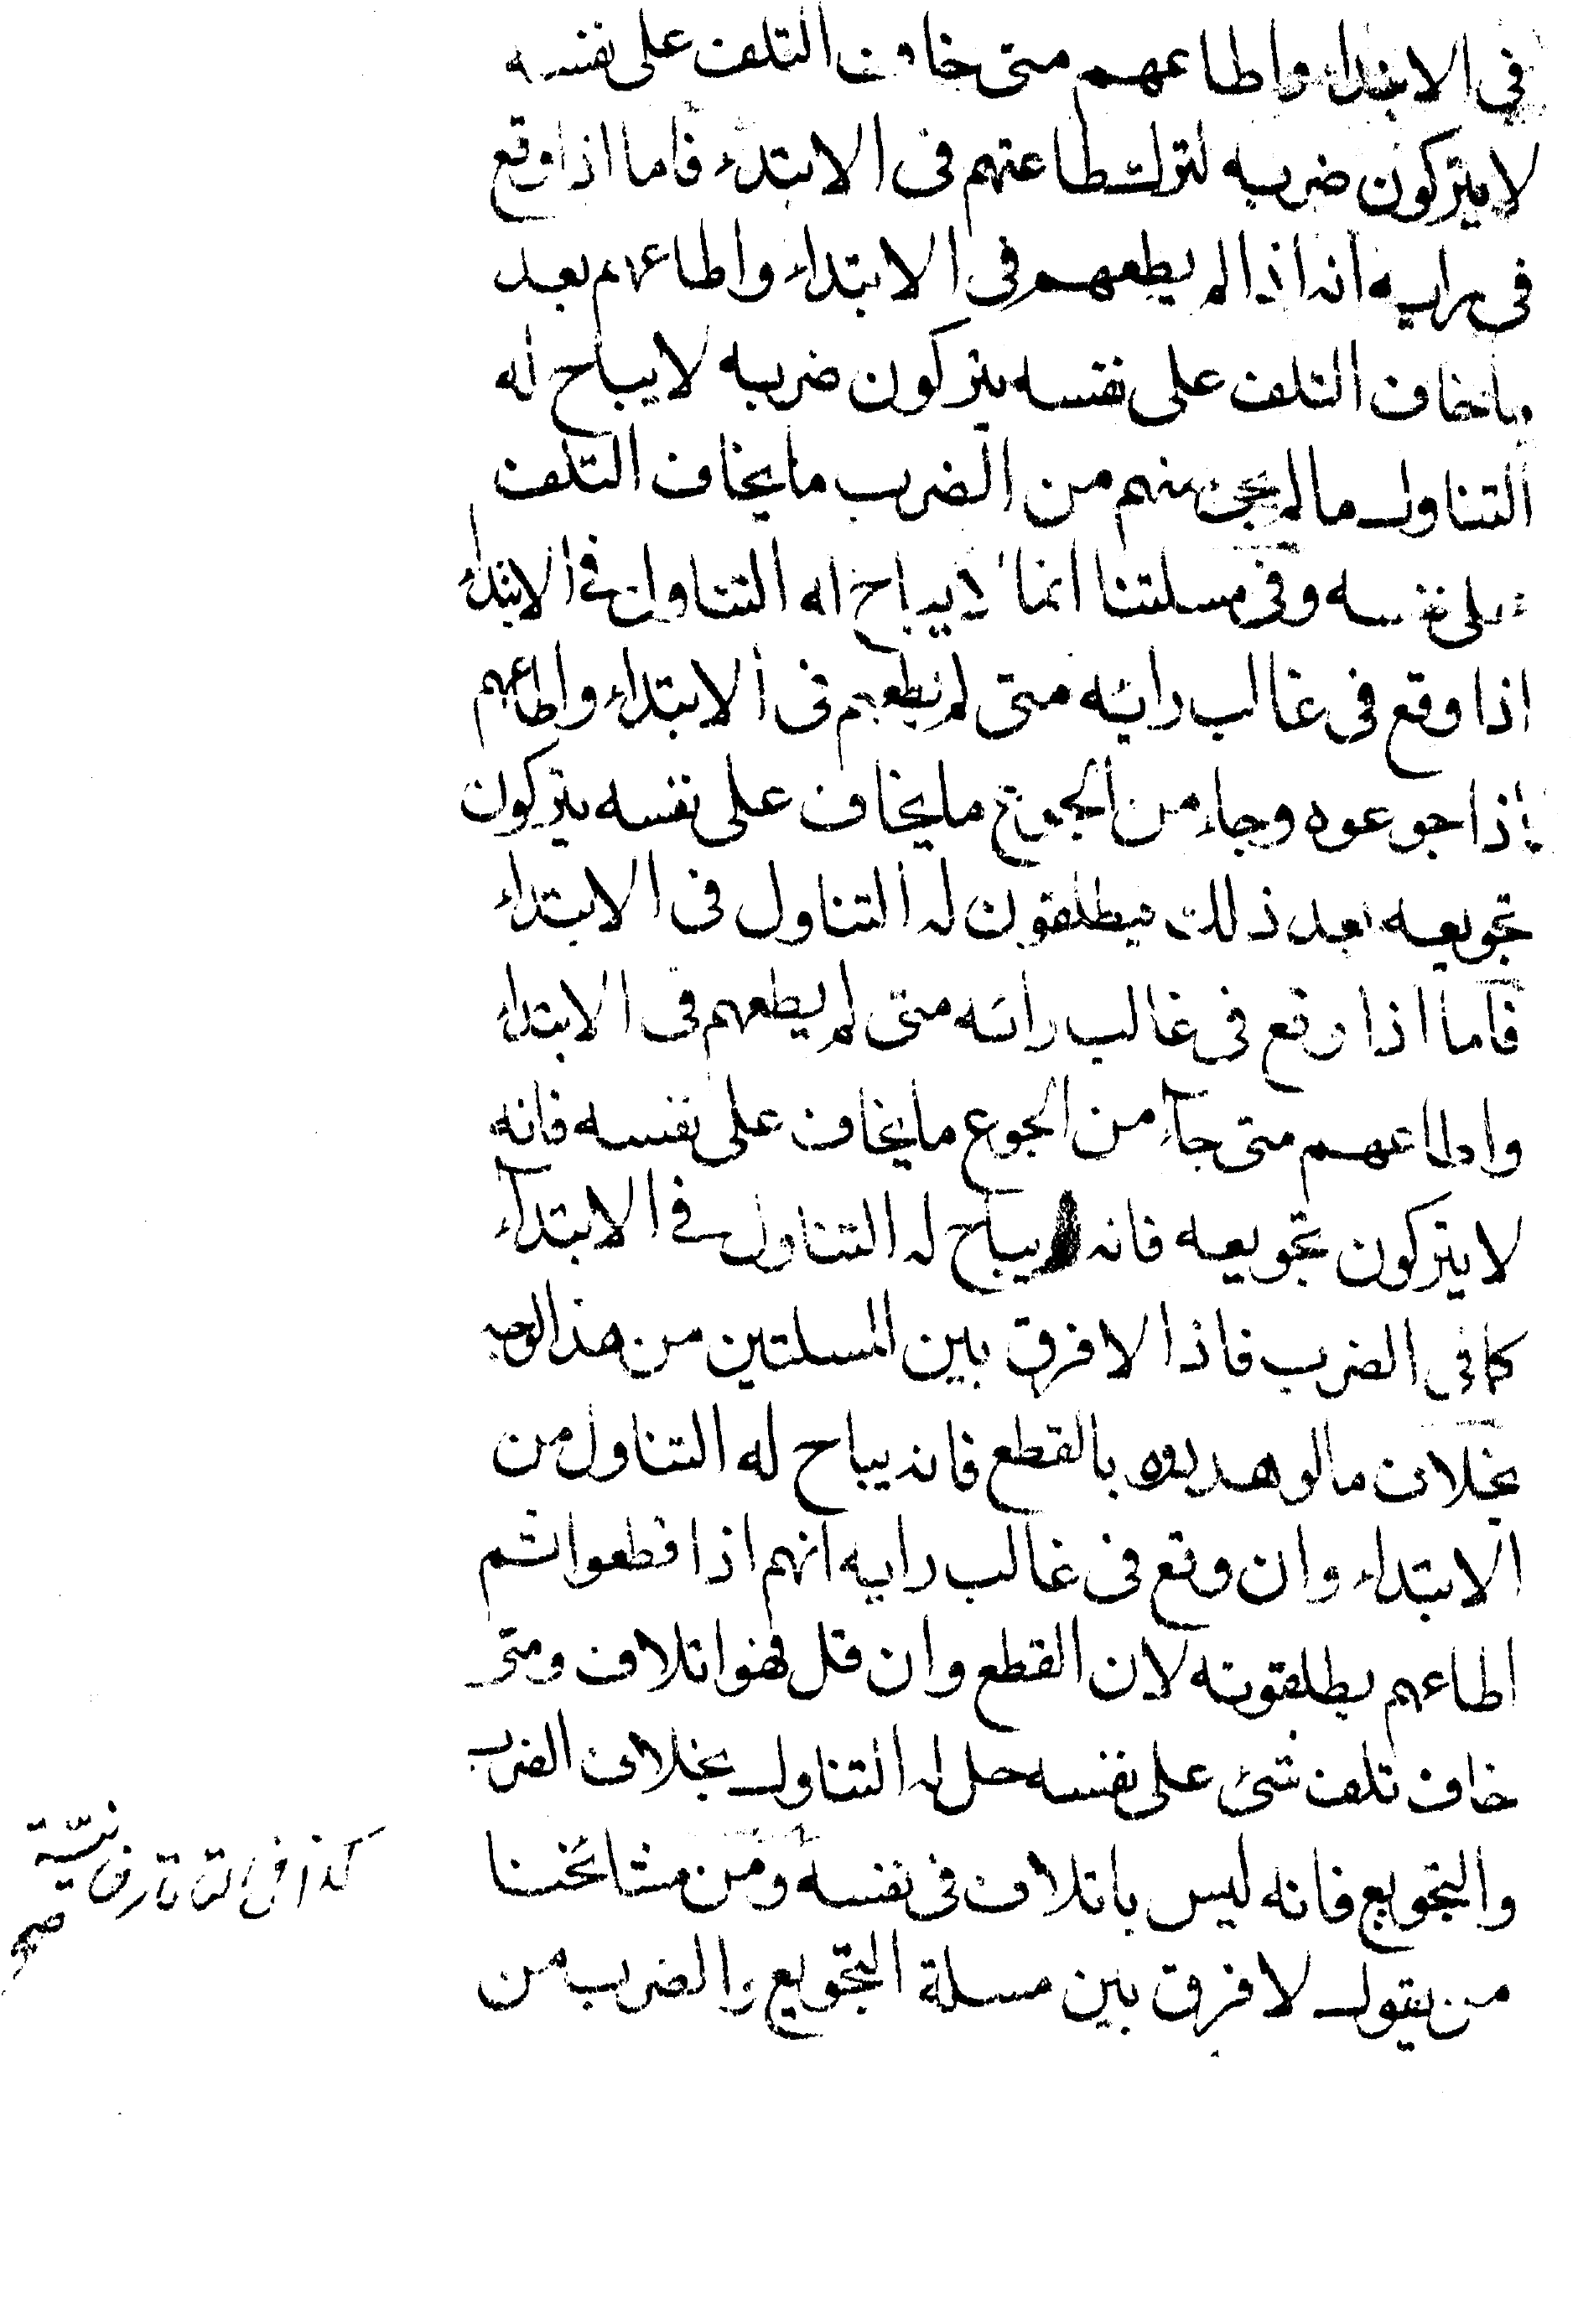 في الابتداء واطاعهم متى خاف التلف على نفسه
لا يتركون ضربه لترك طاعتهم فى الابتداء فاما اذا وقع
فى رايه انه اذا لم يطعهم فى الابتداء واطاعهم بعد
ما خاف التلف على نفسه يتركون ضربه لا يباح له
التناول ما لم يجئ منهم من الضرب ما يخاف التلف
على نفسه وفى مسلتنا انما لا يباح له التناول فى الابتداء
اذا وقع فى غالب رايه متى لم يطعهم فى الابتداء واطاعهم
اذا جوعوه وجاء من الجوع ما يخاف على نفسه يتركون
تجويعه بعد ذلك فيطلقون له التناول فى الابتداء
فاما اذا وقع فى غالب رائه متى لم يطعهم فى الابتداء
واطاعهم متى جآء من الجوع ما يخاف على نفسه فانه
لا يتركون تجويعه فانه يباح له التناول فى الابتدآء
كما فى الضرب فاذا لا فرق بين المسلتين من هذا الوجه
بخلاف ما لو هددوه بالقطع فانه يباح له التناول من
الابتداء وان وقع فى غالب رايه انهم اذا قطعوا ثم
اطاعهم يطلقونه لان القطع وان قل فهو اتلاف ومتى
خاف تلف شئ على نفسه حل له التناول بخلاف الضرب
والتجويع فانه ليس باتلاف فى نفسه ومن مشائخنا
من يقول لا فرق بين مسلة التجويع والضرب من
كذا فى التاتارخانيّة
صح